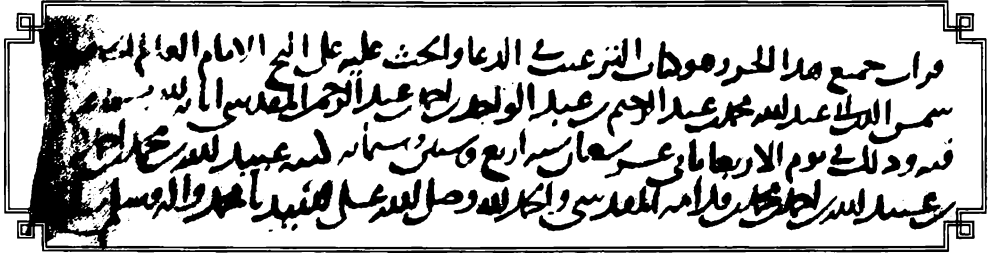 قرات جميع هذا الجزو وهو كتاب الترغيب في الدعا والحث عليه على الشيخ الامام العالم
شمس الدين ابي عبد الله محمد بن عبد الرحيم بن عبد الواحد بن احمد بن عبد الرحمن المقدسي اثابه الله بسماعه
فيه وذلك في يوم الاربعا ثاني عشر شعبان سنه اربع وستين وستمائه كتبه عبيد الله بن محمد بن احمد
بن عبيد الله بن احمد بن محمد بن قدامه المقدسي والحمد لله وصلى الله على سيدنا محمد واله وسلم